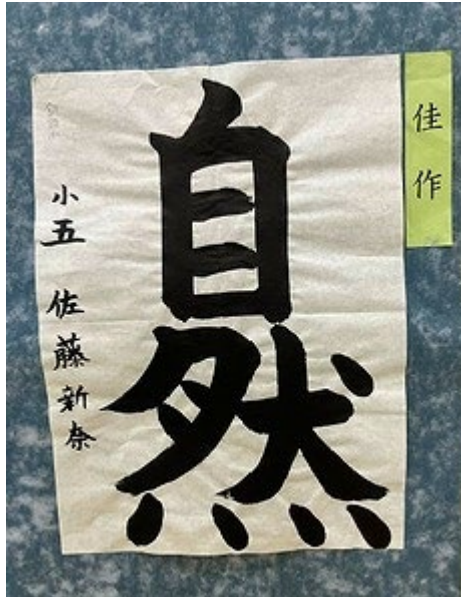 佳作
自然
小五 佐藤新奈